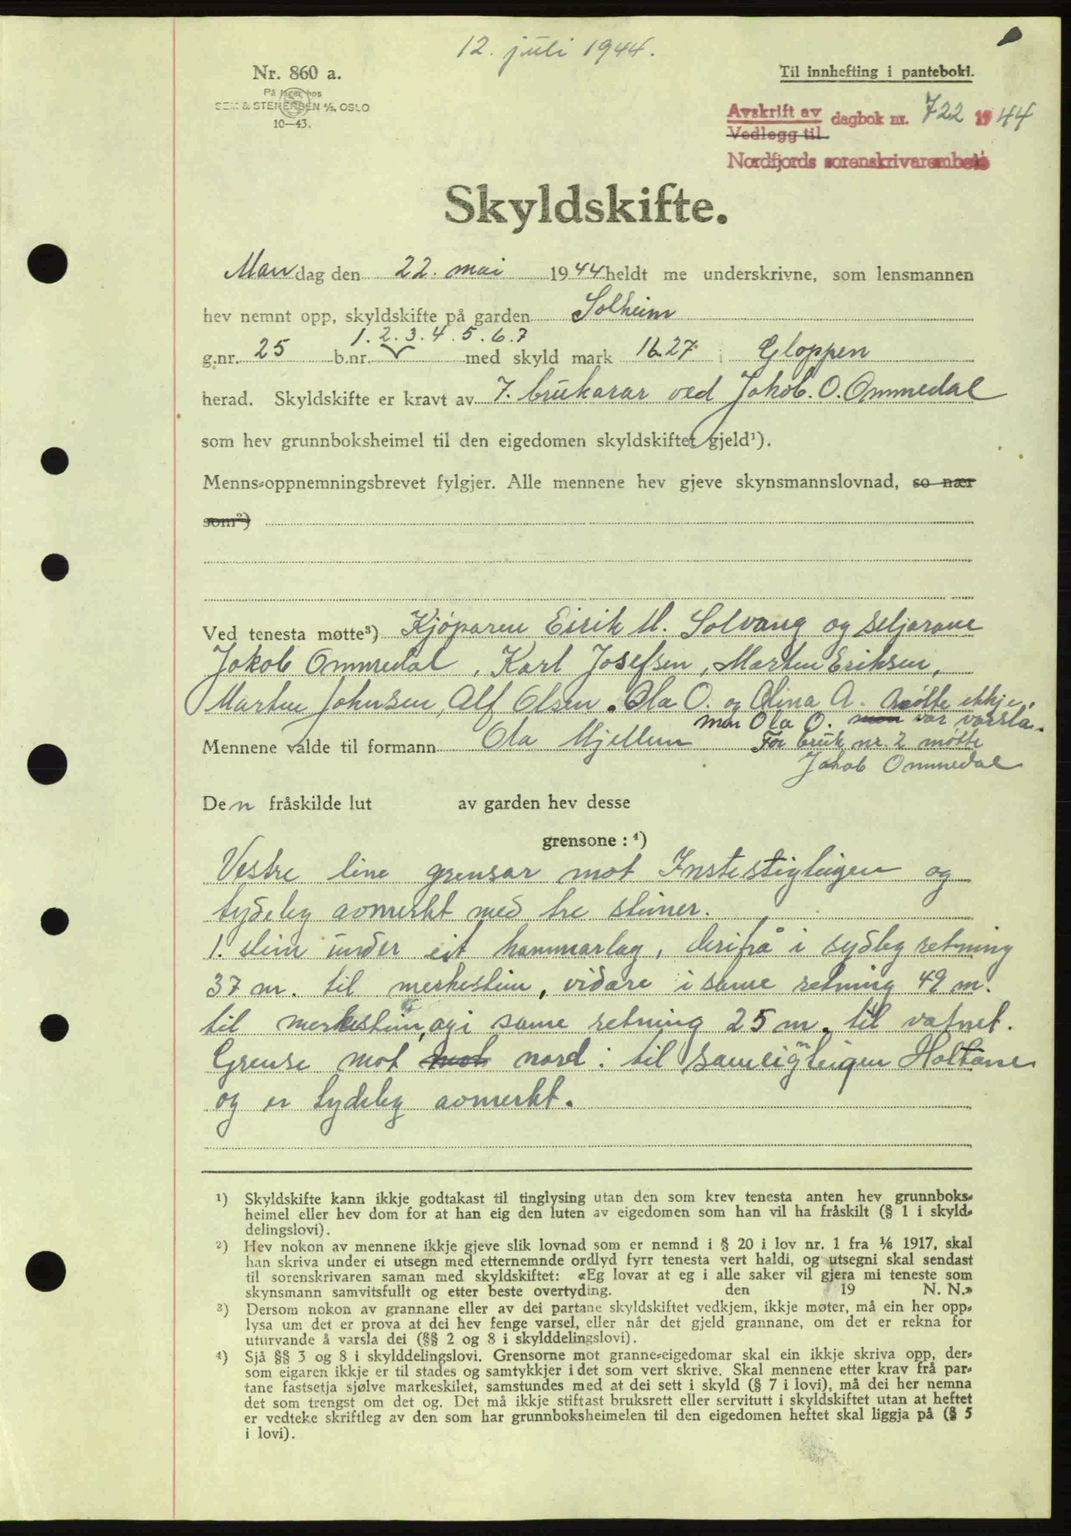 12. juli 1944.
Nr. 860 a.
På lager hos
SEM & STENERSEN A/S, OSLO
10—43.
Til innhefting i pantebok.
Avskrift av dagbok nr. 722 1944
Vedlegg til
Nordfjords sorenskrivarembete
Skyldskifte.
Mandag den 22. mai 1944 heldt me underskrivne, som lensmannen
hev nemnt opp, skyldskifte på garden Solheim
1. 2. 3. 4. 5. 6. 7
g.nr. 25 b.nr. med skyld mark 16.27 i Gloppen
herad. Skyldskifte er kravt av 7. brukarar ved Jakob. O. Ommedal
som hev grunnboksheimel til den eigedomen skyldskiftet gjeld¹).
Menns-oppnemningsbrevet fylgjer. Alle mennene hev gjeve skynsmannslovnad, so nær
som²)
Ved tenesta møtte³) Kjöparen Eirik M. Solvang og seljarane
Jakob Ommedal, Karl Josefsen, Marten Eriksen,
Marten Johnsen, Alf Olsen. Ola O. og Olina A. møtte ikkje,
men Ola O. man var varsla.
Mennene valde til formann Ola Mjellem For bruk nr. 2 møtte
Jakob Ommedal
Den fråskilde lut av garden hev desse
grensone: ⁴)
Vestre line grensar mot Instestigteigen og
tydeleg avmerkt med tre steiner.
1. stein under eit hammarlag, derifrå i sydleg retning
37 m. til merkestein, vidare i same retning 49 m.
til merkestein, og i same retning 25 m. til vatnet.
Grense mot mot nord: til sameigteigen Holtane
og er tydeleg avmerkt.
¹) Skyldskifte kann ikkje godtakast til tinglysing utan den som krev tenesta anten hev grunnboks-
heimel eller hev dom for at han eig den luten av eigedomen som han vil ha fråskilt (§ 1 i skyld-
delingslovi).
²) Hev nokon av mennene ikkje gjeve slik lovnad som er nemnd i § 20 i lov nr. 1 fra ⅙ 1917, skal
han skriva under ei utsegn med etternemnde ordlyd fyrr tenesta vert haldi, og utsegni skal sendast
til sorenskrivaren saman med skyldskiftet: «Eg lovar at eg i alle saker vil gjera mi teneste som
skynsmann samvitsfullt og etter beste overtyding. den 19 N. N.»
³) Dersom nokon av grannane eller av dei partane skyldskiftet vedkjem, ikkje møter, må ein her opp-
lysa um det er prova at dei hev fenge varsel, eller når det gjeld grannane, om det er rekna for
uturvande å varsla dei (§§ 2 og 8 i skylddelingslovi).
⁴) Sjå §§ 3 og 8 i skylddelingslovi. Grensorne mot granne-eigedomar skal ein ikkje skriva opp, der-
som eigaren ikkje er til stades og samtykkjer i det som vert skrive. Skal mennene etter krav frå par-
tane fastsetja sjølve markeskilet, samstundes med at dei sett i skyld (§ 7 i lovi), må dei her nemna
det som trengst om det og. Det må ikkje stiftast bruksrett eller servitutt i skyldskiftet utan at heftet
er vedteke skriftleg av den som har grunnboksheimelen til den eigedomen heftet skal liggja på (§ 5
i lovi).